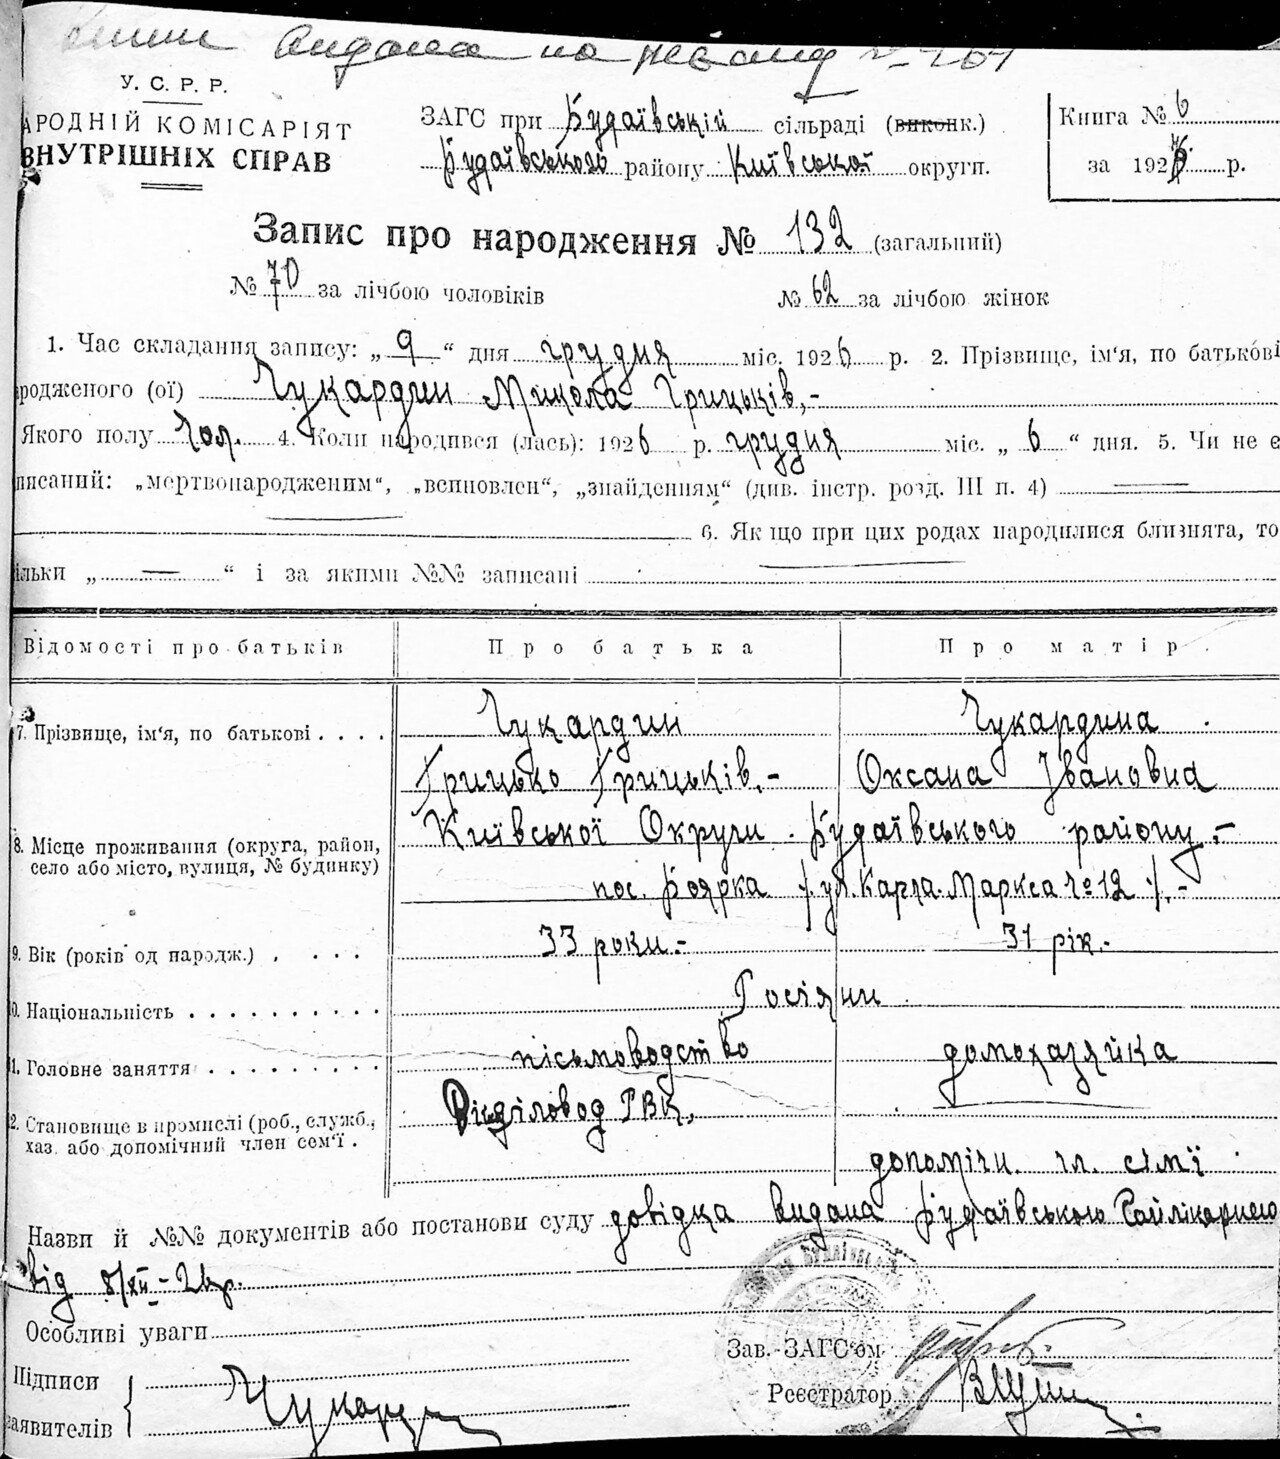 видана на
У. С. Р. Р.
АРОДНІЙ КОМІСАРІЯТ
ВНУТРІШНІХ СПРАВ
ЗАГС при Будаївській сільраді (виконк.)
Будаївського району Київської округи.
Книга № 6
за 1926 р.
Запис про народження № 132 (загальний)
№ 70 за лічбою чоловіків № 62 за лічбою жінок
1. Час складання запису: „ 9 “ дня грудня міс. 1926 р. 2. Прізвище, ім‘я, по батькові
родженого (ої) Чукардин Микола Грицьків,-
Якого полу чол. 4. Коли народився (лась): 1926 р. грудня міс. „ 6 “ дня. 5. Чи не є
писаний: „мертвонародженим“, „всиновлен“, „знайденням“ (див. інстр. розд. III п. 4)
6. Якщо при цих родах народилися близнята, то
ільки „ — “ і за якими №№ записані
Відомості про батьків Про батька Про матір
7. Прізвище, ім‘я, по батькові Чукардин Чукардина
Грицько Грицьків,- Оксана Івановна
8. Місце проживання (округа, район, село або місто, вулиця, № будинку) Київської Округи Будаївського району,-
пос. Боярка /ул. Карла-Маркса № 12/,-
9. Вік (років од народж.) 33 роки.- 31 рік.-
0. Національність Росіяни
1. Головне заняття письмоводство домохазяйка
2. Становище в промислі (роб., служб., хаз. або допомічний член сем‘ї. Діловод РВК,
допомічн. чл. сім'ї
Назви й №№ документів або постанови суду довідка видана Будаївською Райлікарнею
від 8/XII-26р.
Особливі уваги
Зав. ЗАГС‘ом
Підписи
аявителів
Чукард
Реєстратор